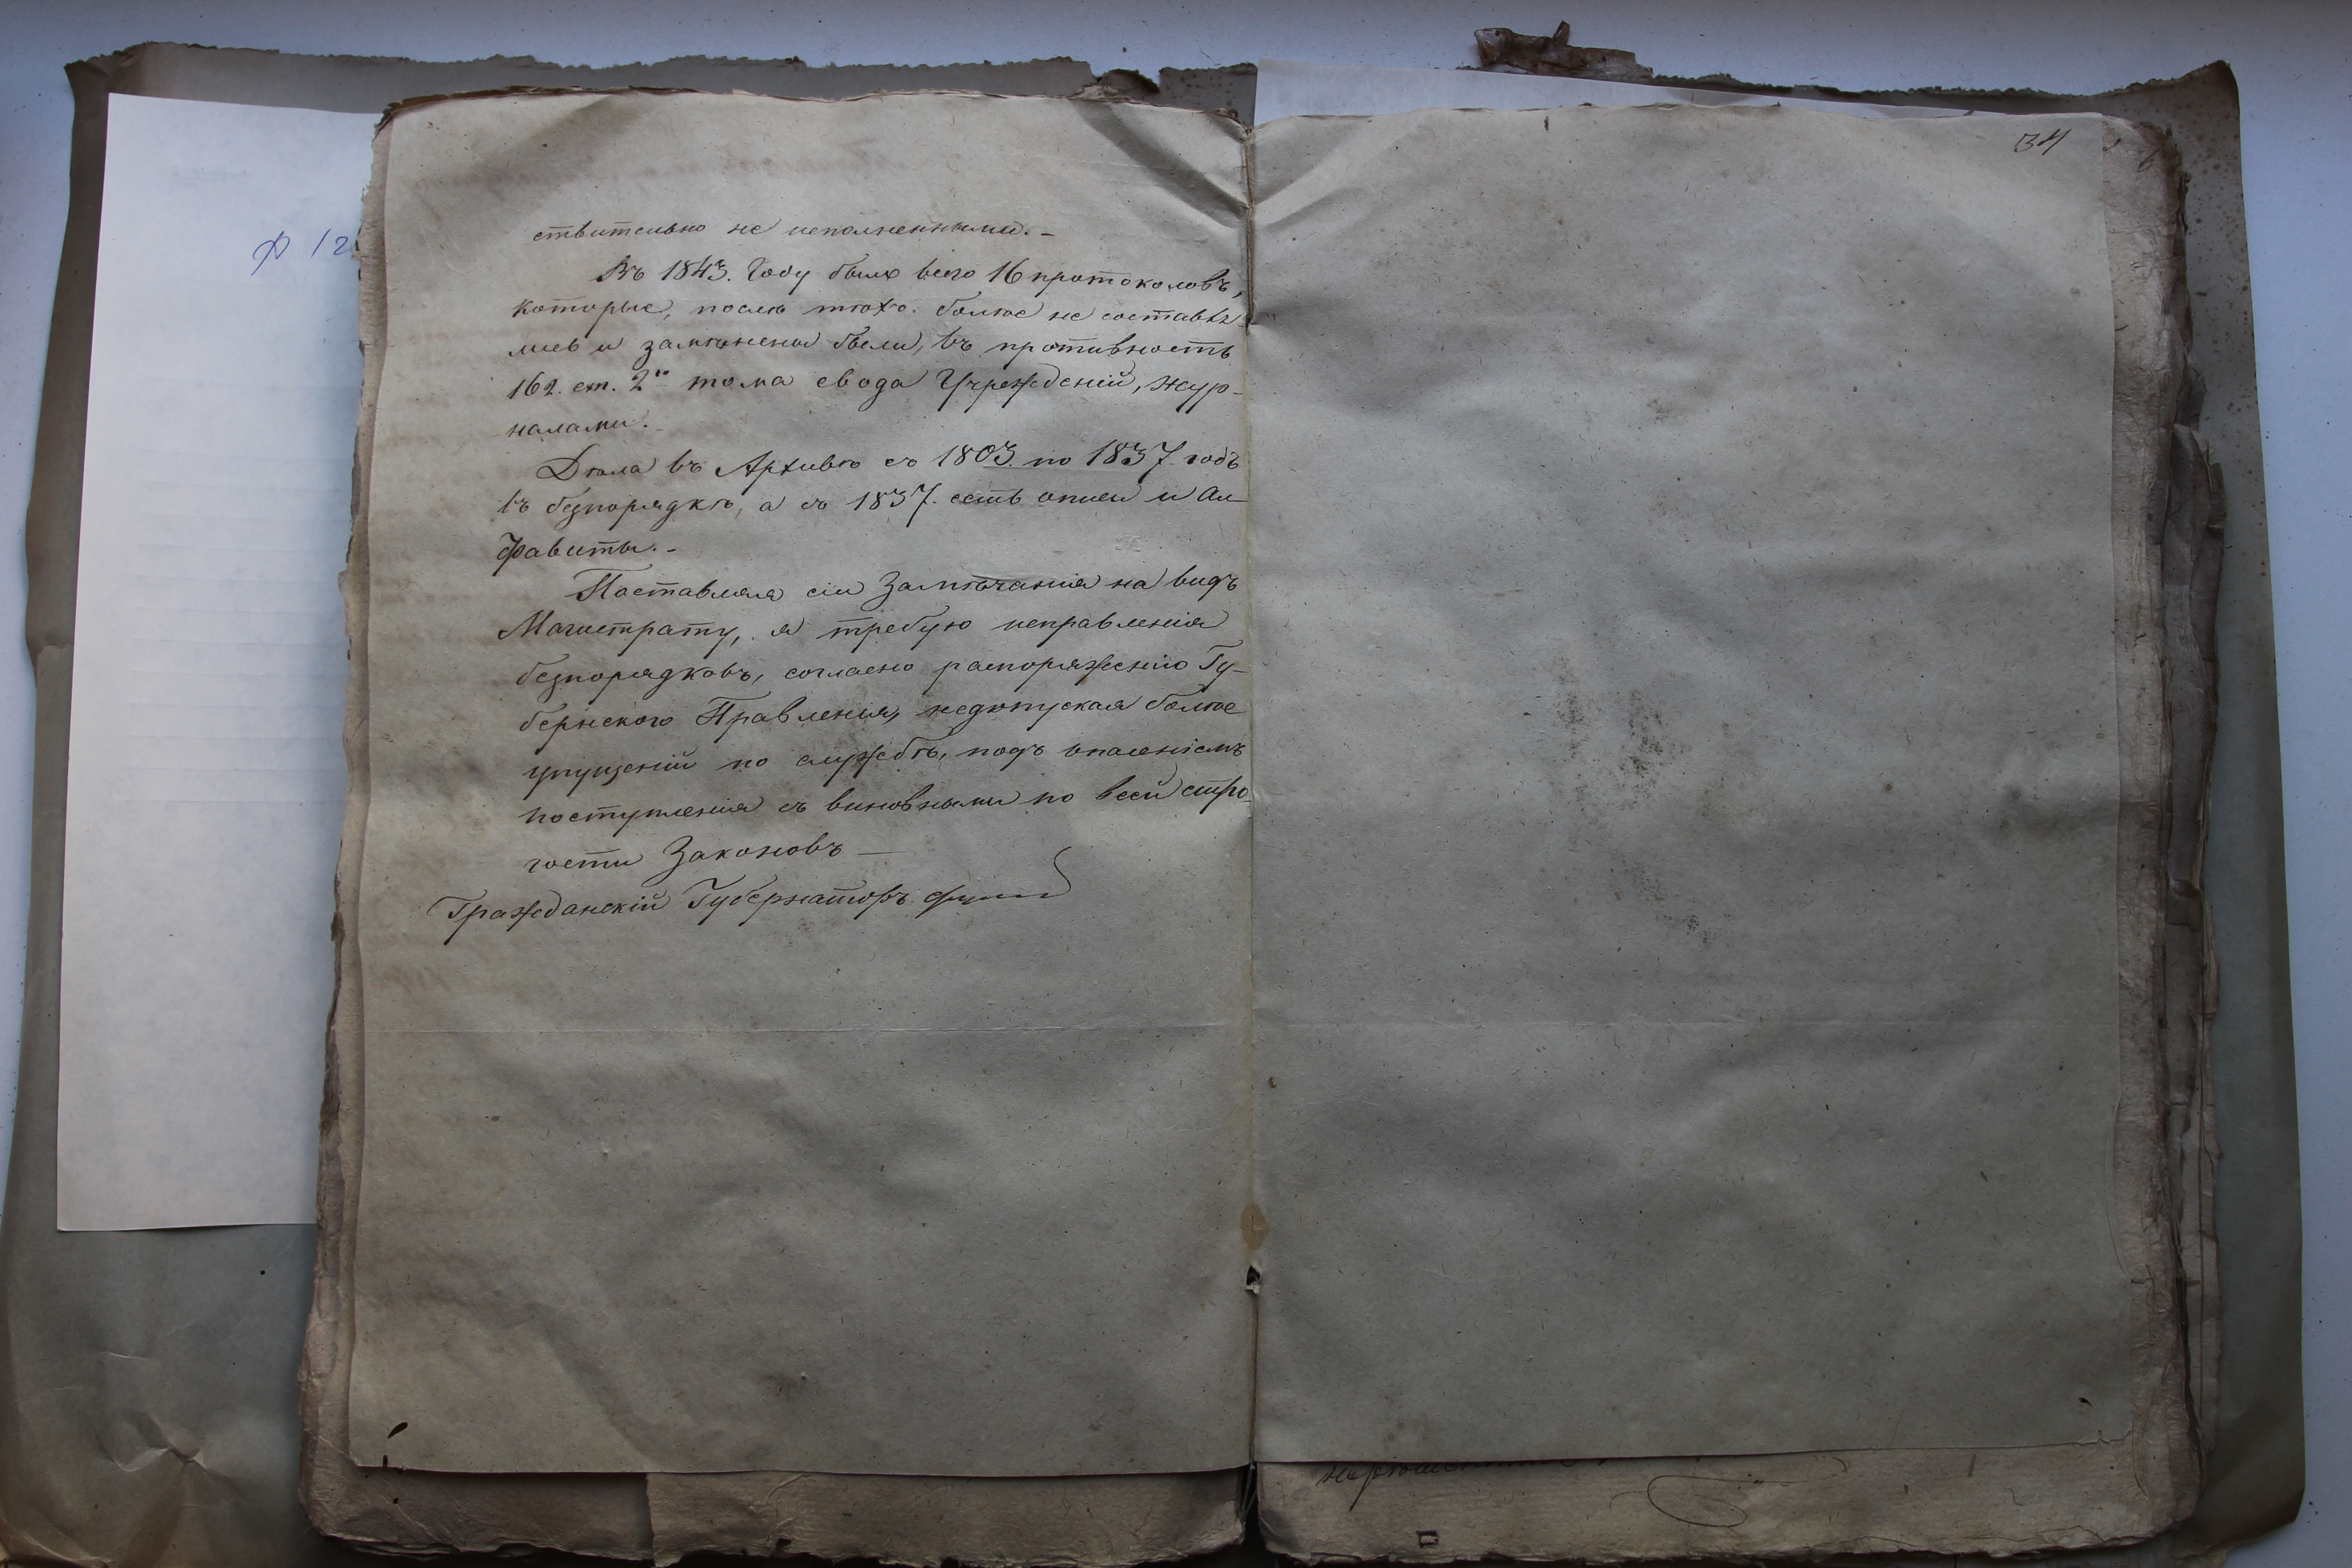 ф 12
ствительно не исполненными. –
Въ 1843. Году было всего 16 протоколовъ,
которые, послѣ того. болѣе не составля-
лись и замѣнены были, въ противность
162. ст. 2го тома свода Учрежденій, жур-
налами. –
Дѣла въ Архивѣ съ 1803. по 1837. годъ
въ безпорядкѣ, а съ 1837. есть описи и Ал-
фавиты. –
Поставляя сіи Замѣчанія на видъ
Магистрату, я требую исправленія
безпорядковъ, согласно распоряженію Гу-
бернского Правленія, недопуская болѣе
упущеній по службѣ, подъ опасеніемъ
поступленія съ виновными по всей стро-
гости Законовъ –
Гражданскій Губернаторъ
34